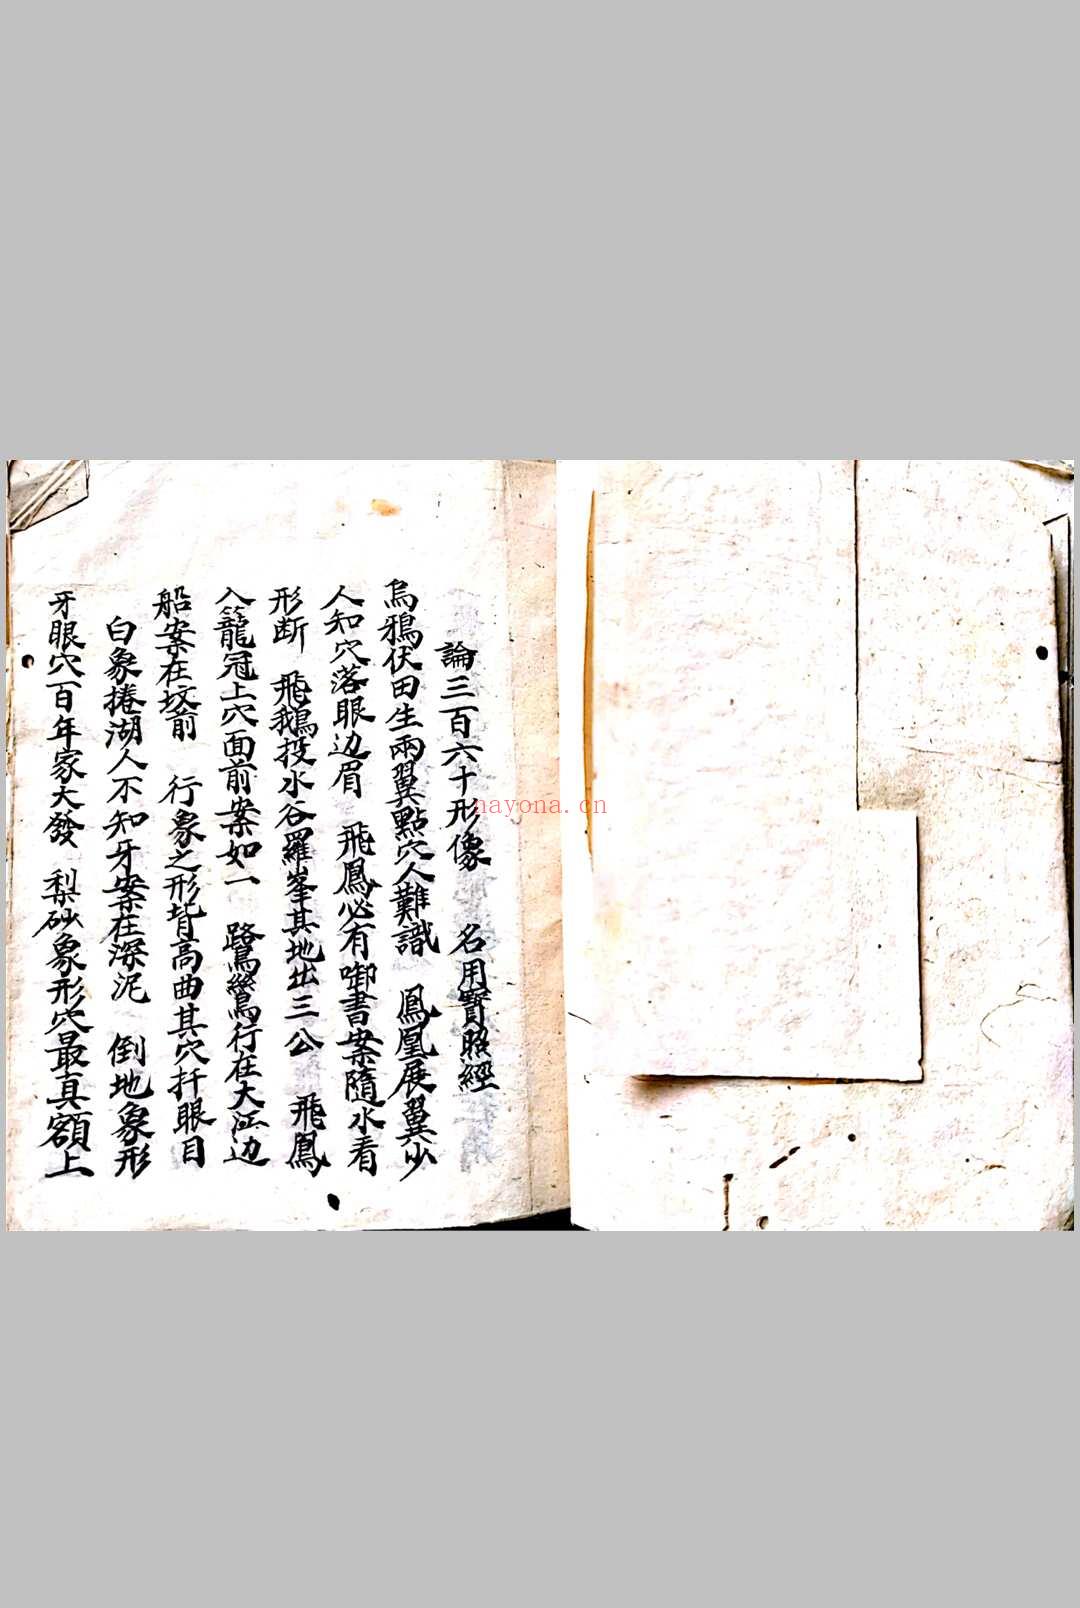 論三百六十形像　名用寶照經
烏鴉伏田生兩翼點穴人難識　鳳凰展翼少
人知穴落眼边眉　飛鳳必有啣書案隨水看
形断　飛鵝投水谷羅峯其地出三公　飛鳳
入籠冠上穴面前案如一　鷺鷥行在大江边
船案在坟前　行象之形皆高曲其穴扦眼目
白象捲湖人不知牙案在深泥　倒地象形
牙眼穴百年家大發　梨砂象形穴最真額上
nayona.cn